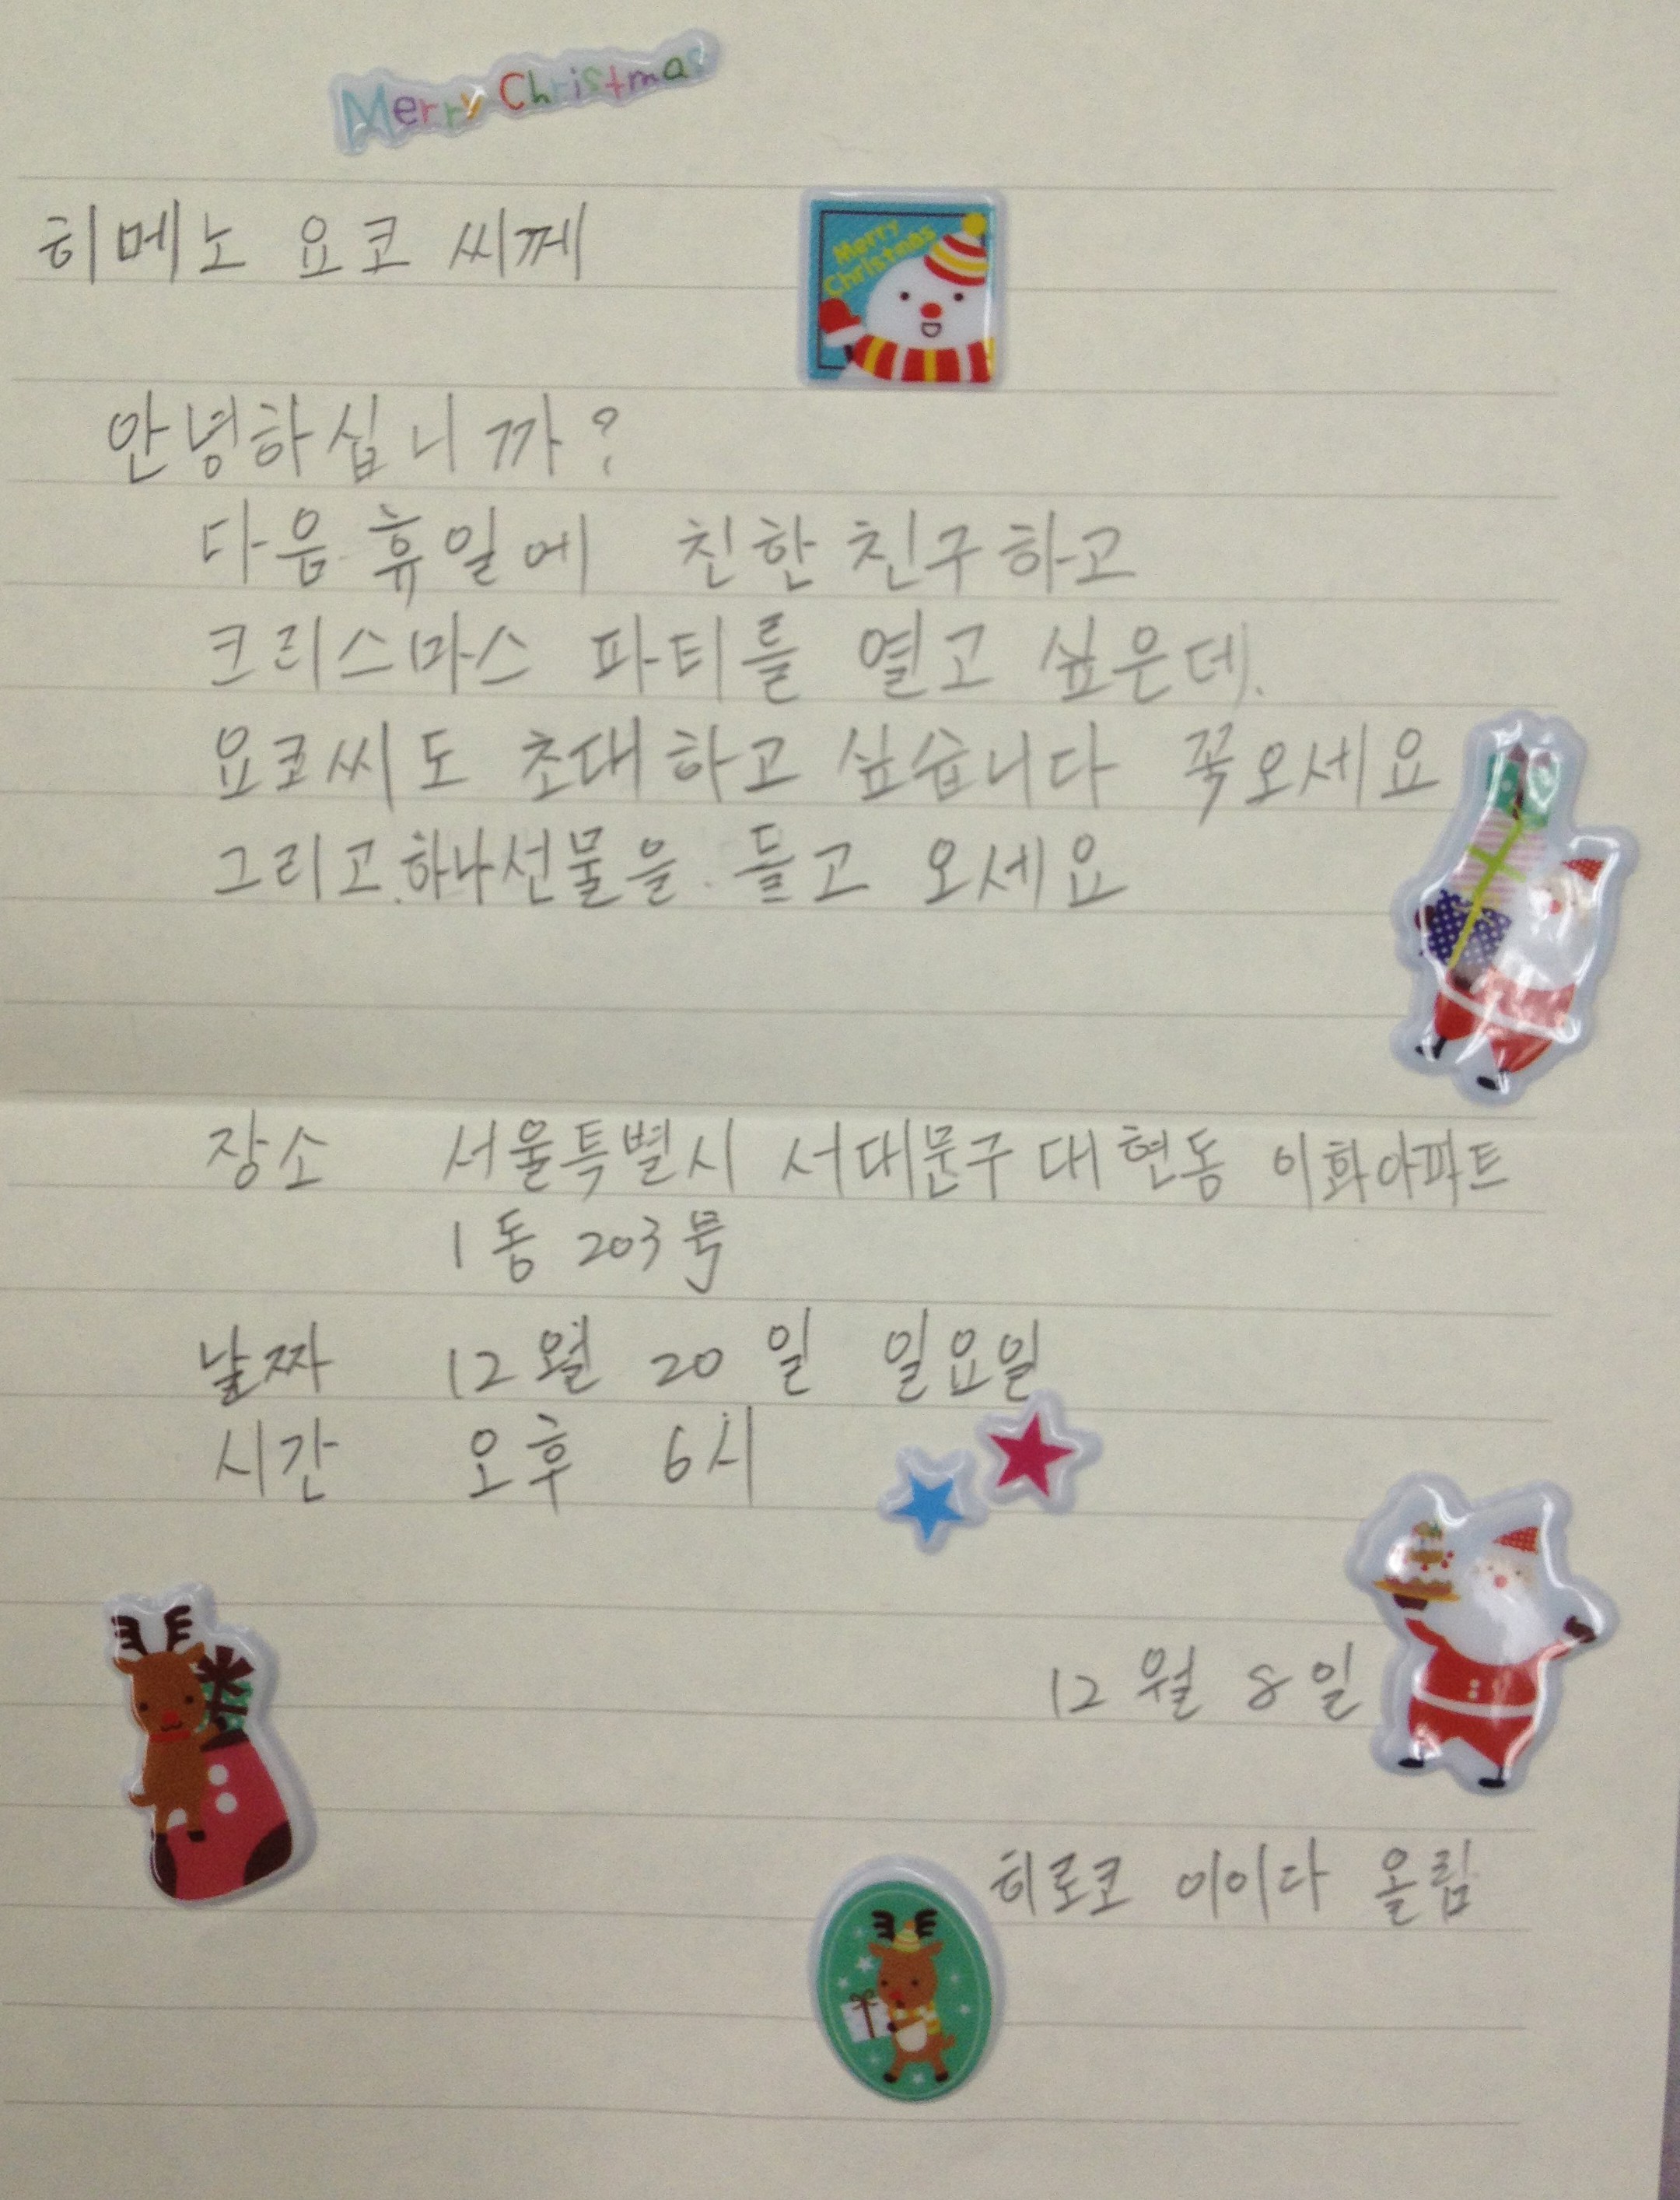 Merry Christmas
Merry
Christmas
히메노 요코 씨께
안녕하십니까?
다음 휴일에 친한 친구하고
크리스마스 파티를 열고 싶은데.
요코씨도 초대하고 싶습니다 꼭오세요
그리고.하나선물을. 들고 오세요
장소 서울특별시 서대문구 대현동 이화아파트
1동 203호
날짜 12월 20일 일요일
시간 오후 6시
12월 8일
히로코 이이다 올림